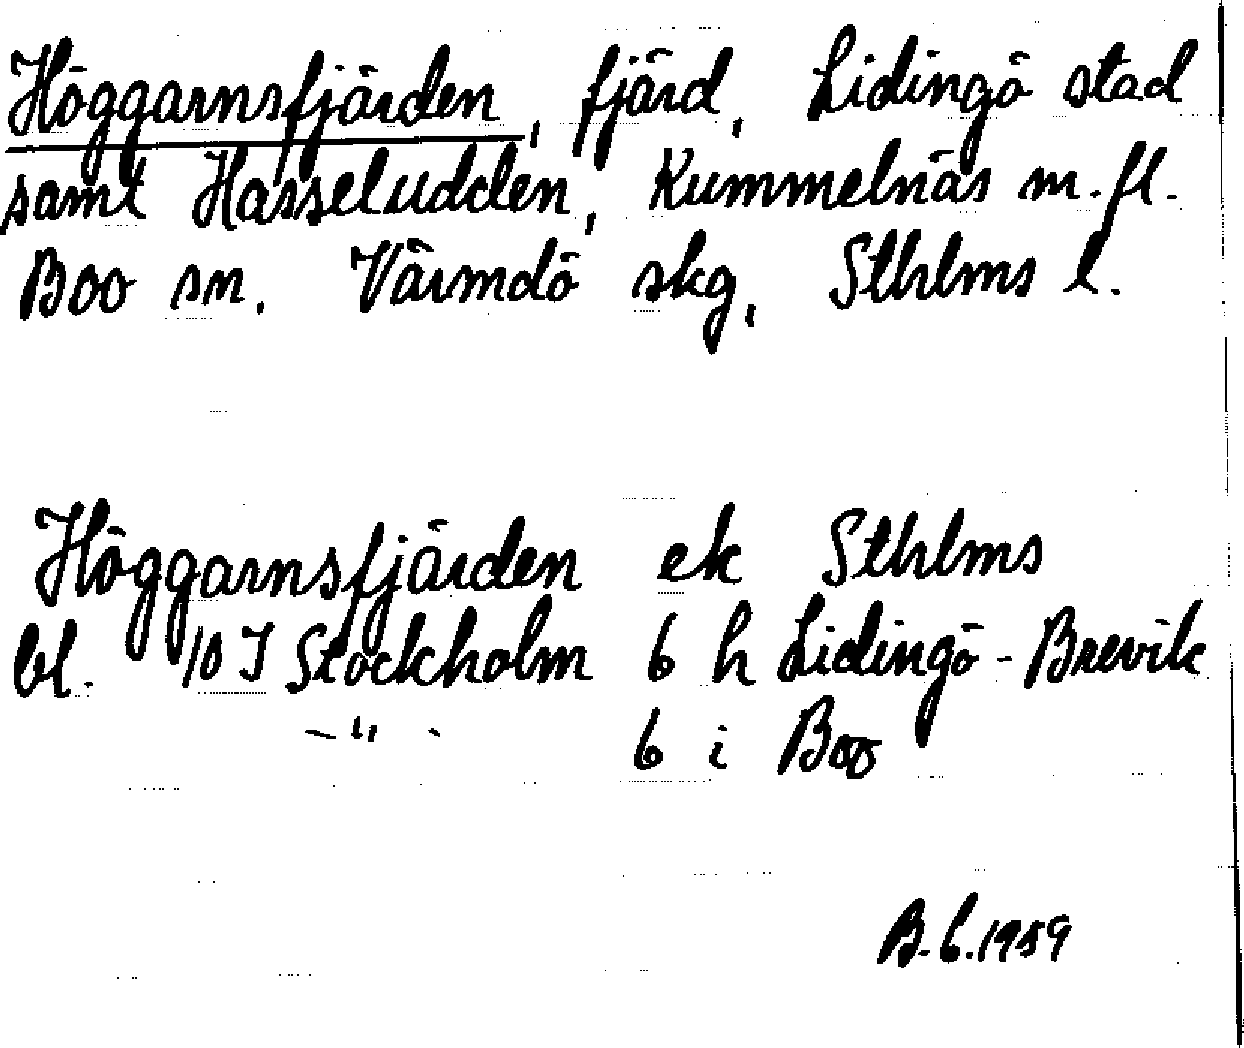 Höggarnsfjärden, fjärd, Lidingö stad
samt Hasseludden, Kummelnäs m.fl.
Boo sn. Värmdö skg, Sthlms l.
Höggarnsfjärden ek Sthlms
bl. 10 I Stockholm 6 h Lidingö-Brevik
-"- 6 i Boo
B.C.1959